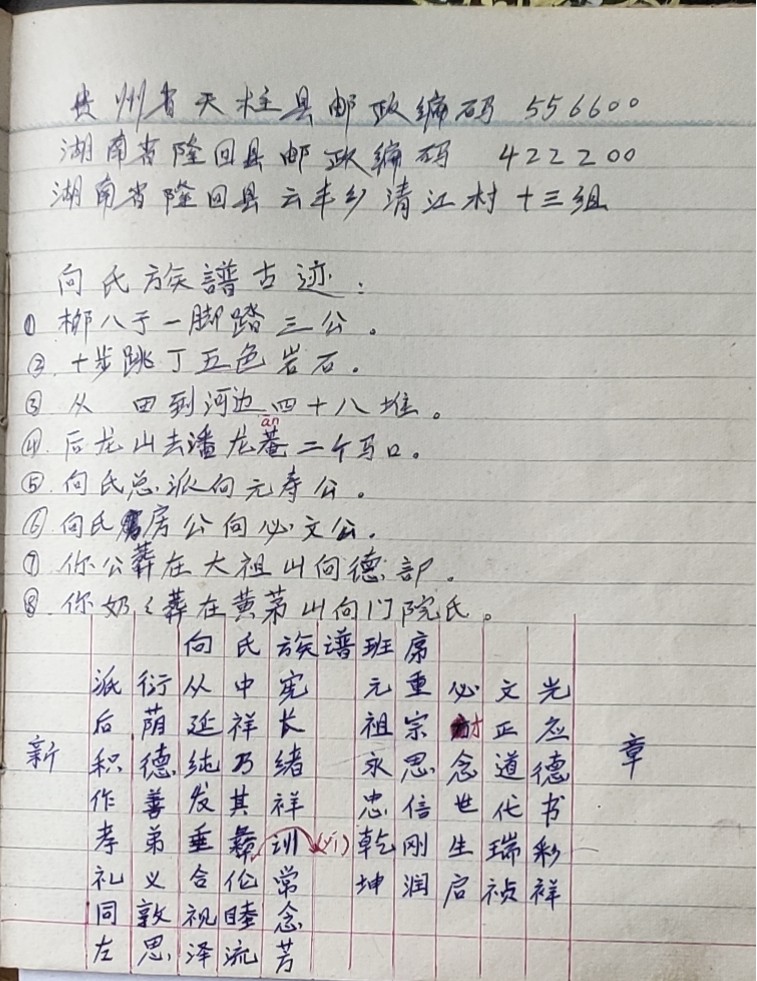 贵州省天柱县邮政编码 556600
湖南省隆回县邮政编码 422200
湖南省隆回县云丰乡清江村十三组
向氏族譜古迹：
① 梆八于一脚踏三公。
② 十步跳丁五色岩石。
③ 从 田到河边四十八堆。
an
④ 后龙山去潘龙菴二个马口。
⑤ 向氏总派向元寿公。
⑥ 向氏房公向必文公。
⑦ 你公葬在大祖山向德部。
⑧ 你奶々葬在黄茅山向门院氏。
向氏族谱班席
派衍从中宪 元重必文光
后荫延祥长 祖宗 正应
新 积德纯乃绪 永思念道德 章
作善发其祥 忠信世代书
孝弟垂彝训 (yi) 乾刚生瑞彩
礼义合伦常 坤润启祯祥
同敦视睦念
左思泽流芳